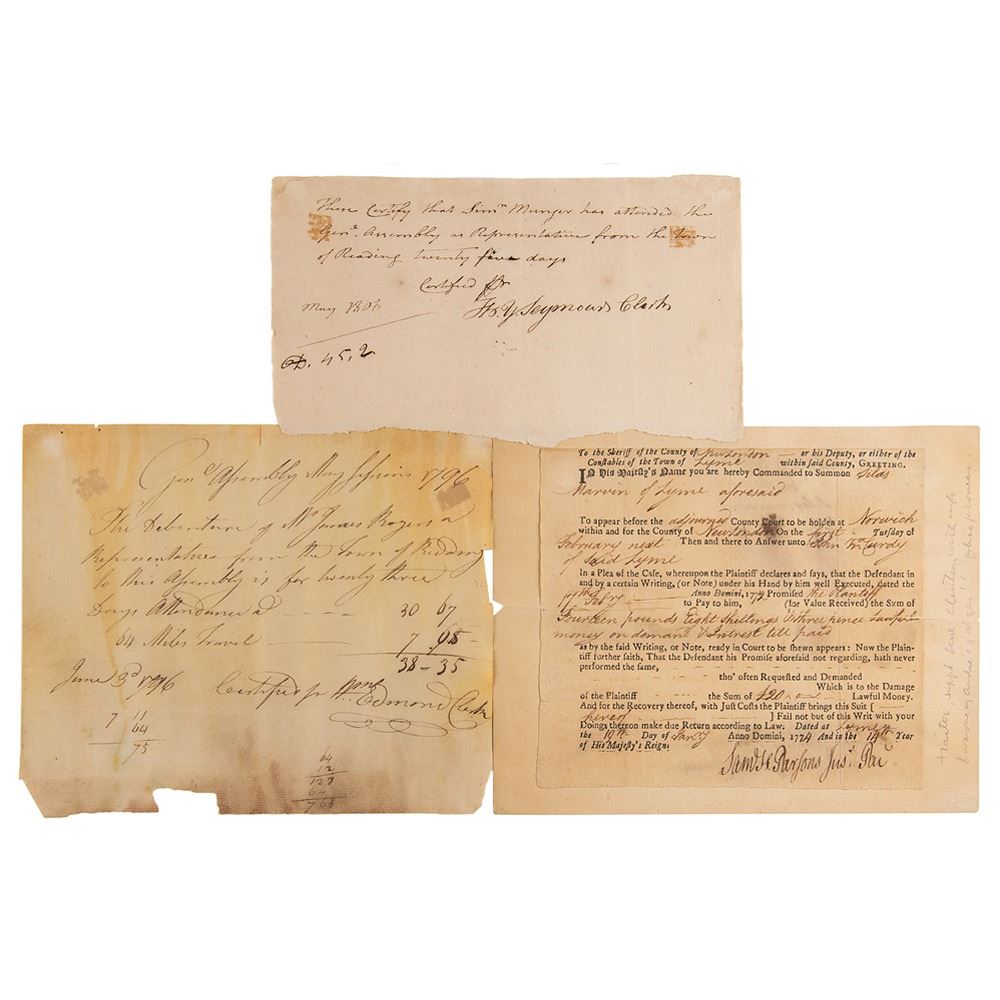 These Certify that Sim.ⁿ Munger has attended the
Gen.ˡ Assembly as Representative from the Town
of Reading twenty five days
Certified
May 1806
Th.s Y Seymour Clerk
D. 45,2
Gen.ˡ Assembly May Session 1796
The Debenture of Mr James Rogers a
Representatives from the Town of Redding
to this Assembly is for twenty three
Days Attendance a - - - 30 67
64 Miles Travel - - - 7 68
38-35
June 3d 1796 Certified pr Wm Edmond Clerk
7 11
64
75
64
12
128
64
768
To the Sheriff of the County of NewLondon — or his Deputy, or either of the
Constables of the Town of Lyme within said County, GREETING.
IN His Majesty's Name you are hereby Commanded to Summon Silas
Marvin of Lyme aforesaid
To appear before the adjourned County Court to be holden at Norwich
within and for the County of NewLondon On the first Tuesday of
February next Then and there to Answer unto John McCurdy
of said Lyme
In a Plea of the Case, whereupon the Plaintiff declares and says, that the Defendant in
and by a certain Writing, (or Note) under his Hand by him well Executed, dated the
17th Feb'ry Anno Domini, 177 Promised the Plaintiff
to Pay to him, (for Value Received) the Sum of
Fourteen pounds Eight Shillings & three pence Lawful
money on demand & Interest till paid
as by the said Writing, or Note, ready in Court to be shewn appears: Now the Plain-
tiff further saith, That the Defendant his Promise aforesaid not regarding, hath never
performed the same,
tho' often Requested and Demanded
Which is to the Damage
of the Plaintiff the Sum of £20 Lawful Money.
And for the Recovery thereof, with Just Costs the Plaintiff brings this Suit [
hereof ] Fail not but of this Writ with your
Doings thereon make due Return according to Law. Dated at Lyme
the 19th Day of Jan'y Anno Domini, 1774 And in the 14th Year
of His Majesty's Reign.
Saml H. Parsons Jus.t Pac